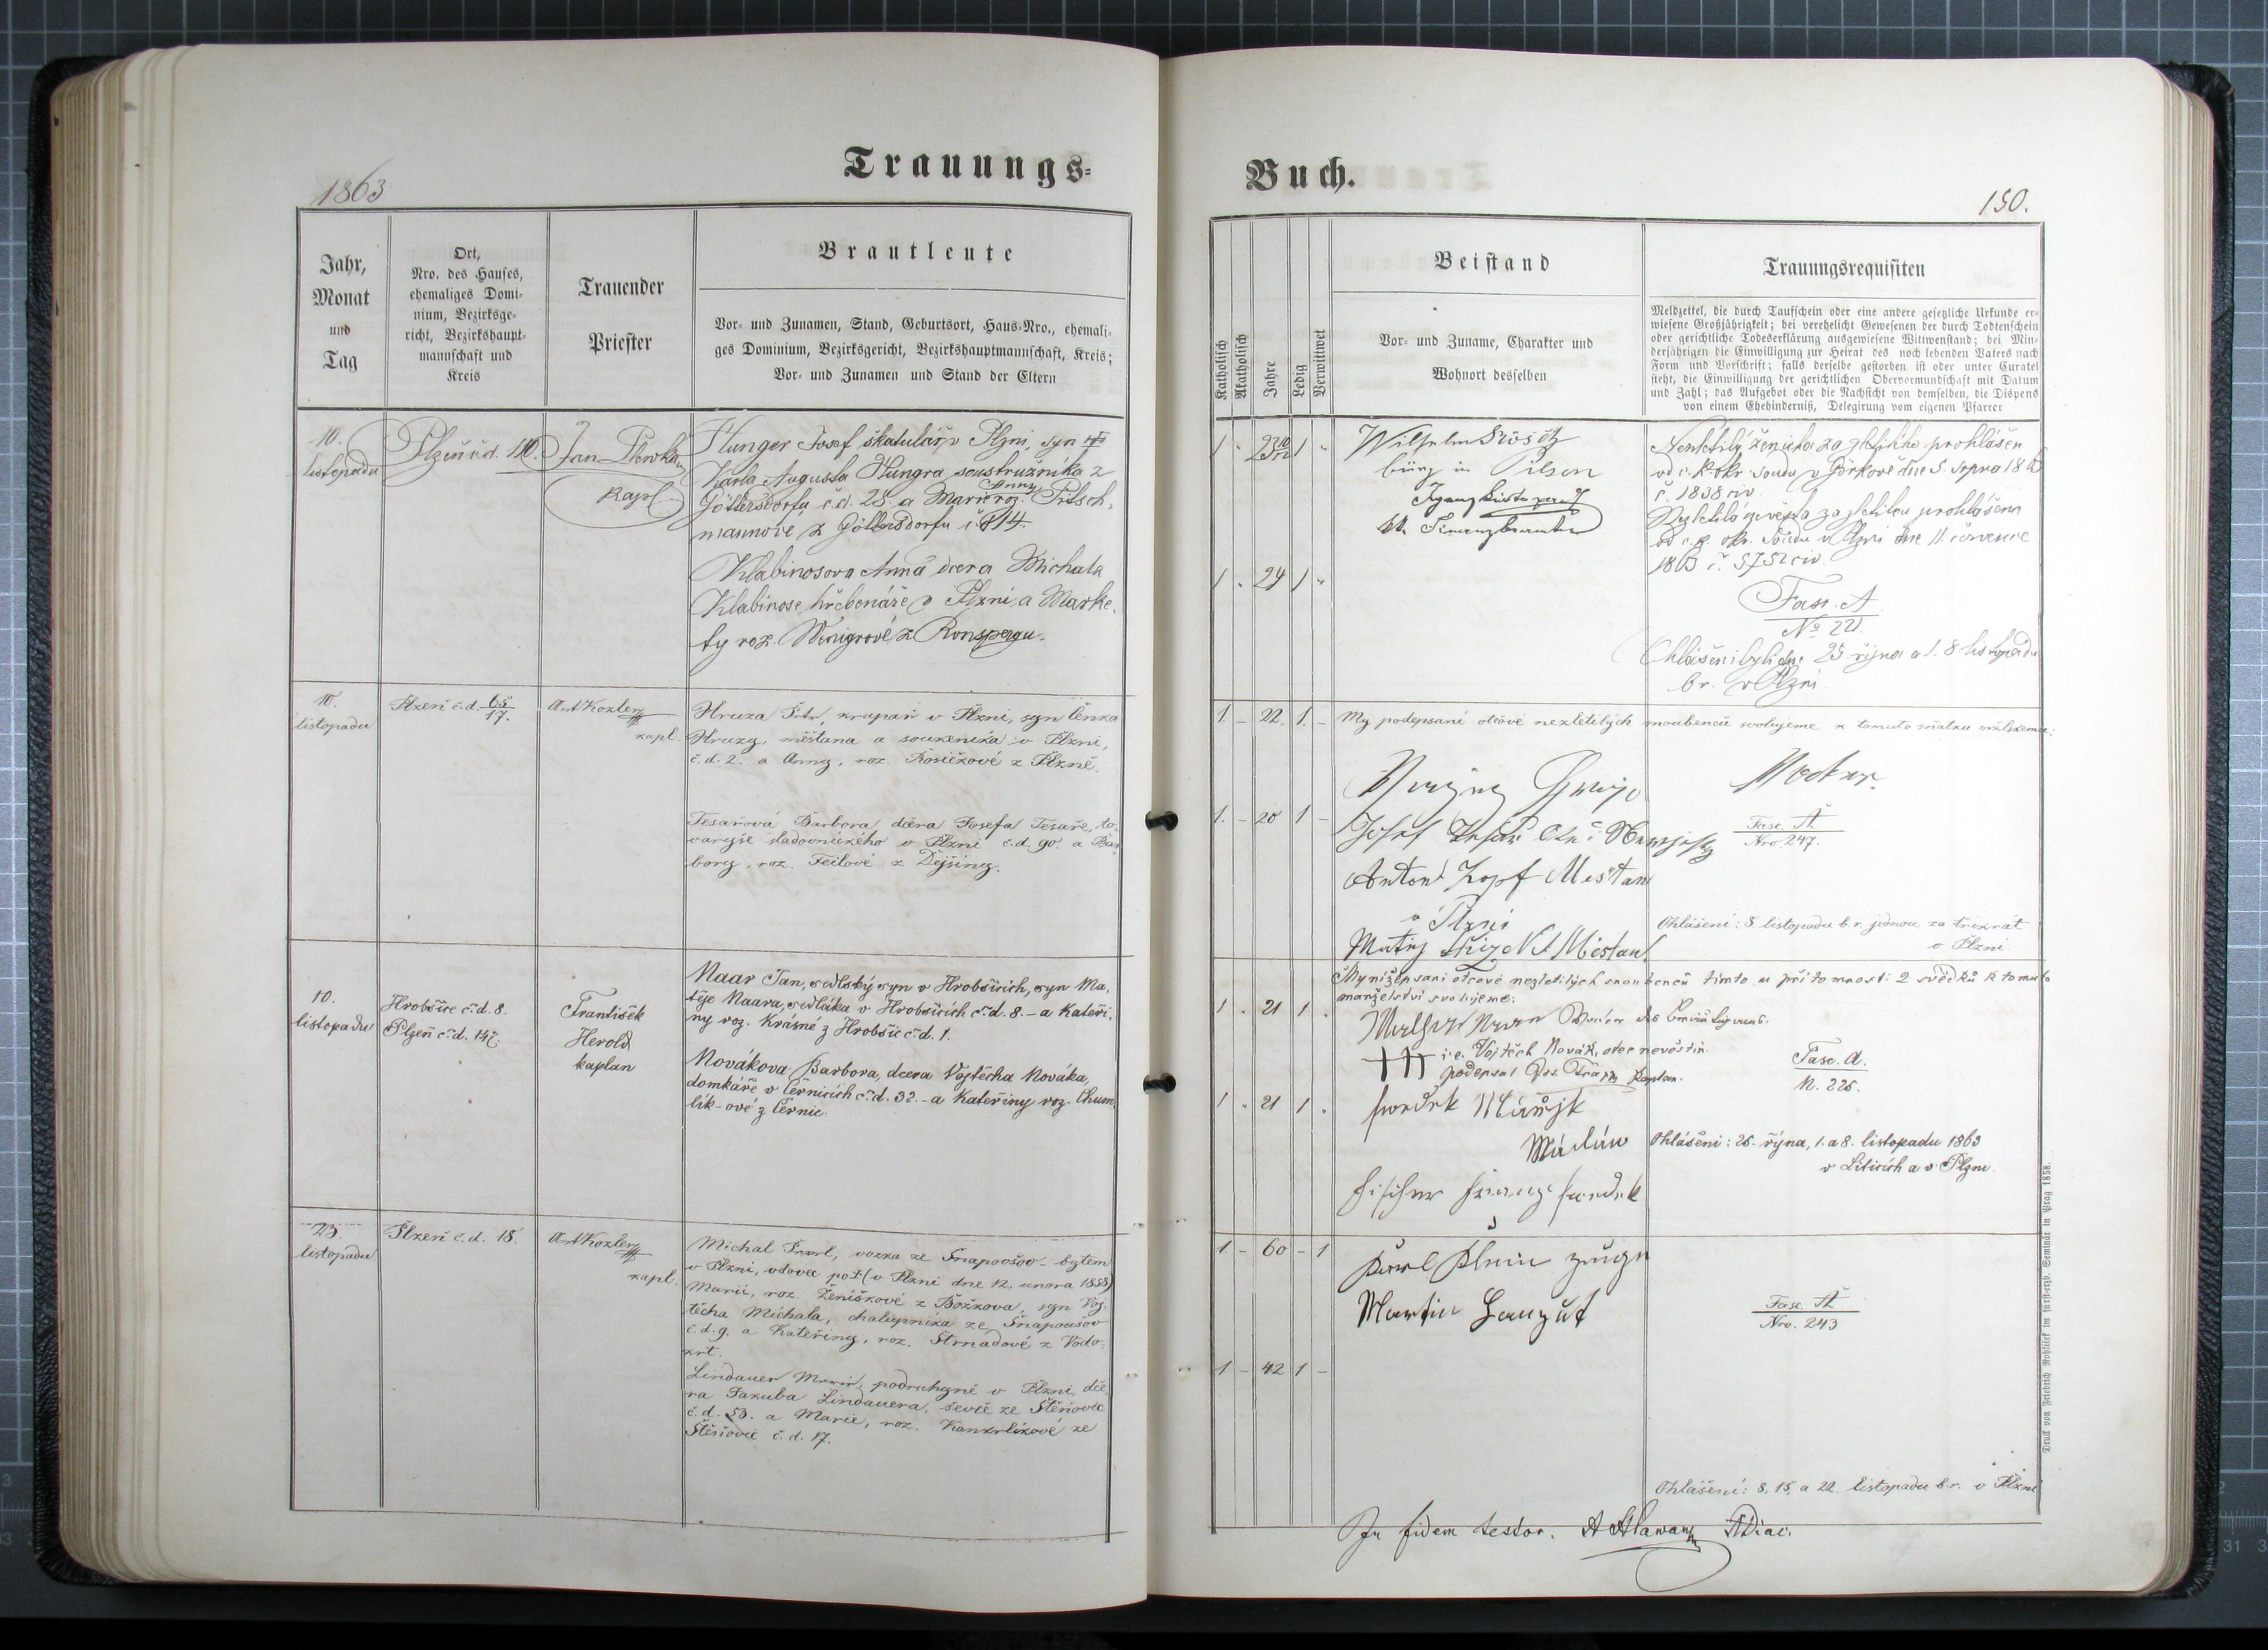 Trauungs=
1863
Jahr,
Monat
und
Tag
Ort,
Nro. des Hauses,
ehemaliges Domi-
nium, Bezirksge-
richt, Bezirkshaupt-
mannschaft und
Kreis
Trauender
Priester
Brautleute
Vor- und Zunamen, Stand, Geburtsort, Haus-Nro., ehemali-
ges Dominium, Bezirksgericht, Bezirkshauptmannschaft, Kreis;
Vor- und Zunamen und Stand der Eltern
10.
listopadu
Plzeň č.d. 110.
Jan
kapl.
Hunger Josef škatulář v Plzni, syn
Karla Augusta Hungra soustružníka z
Göttersdorfu č.d. 25. a Marie Anny roz. Pitsch-
mannové z Göttersdorfu č. 14.
Klabinosova Anna dcera Michala
Klabinose hřebenáře v Plzni, a Marke-
ty roz. Wenigrové z Ronspergu.
10.
listopadu
Plzeň č.d. 65/17.
Ant Kozler
kapl.
Hruza Petr, krupař v Plzni, syn Čenka
Hruzy, měštana a soukeníka v Plzni,
č.d. 2. a Anny, roz. Rosičkové z Plzně.
Tesařová Barbora dcera Josefa Tesaře, to-
varyše sladovnického v Plzni č.d. 90. a Bar-
bory, roz. Feilové z Dejšiny.
10.
listopadu
Hrobšice č.d. 8.
Plzeň č.d. 147.
František
Herold
kaplan
Naar Jan, sedlský syn v Hrobšicích, syn Ma-
těje Naara, sedláka v Hrobšicích č.d. 8. - a Kateři-
ny roz. Krásné z Hrobšic č.d. 1.
Novákova Barbora, dcera Vojtěcha Nováka,
domkáře v Černicích č.d. 32. - a Kateřiny roz. Chum-
lík-ové z Černic.
23.
listopadu
Plzeň č.d. 18.
Ant Kozler
kapl.
Michal Pavel, vozka ze Šnapoušov - bytem
v Plzni, vdovec po † (v Plzni dne 12. unora 1858)
Marii, roz. Ženíškové z Božkova, syn Voj-
těcha Michala, chalupníka ze Šnapoušov
č.d. 9. a Kateřiny, roz. Strnadové z Vodo-
krt.
Lindauer Marie, podruhyně v Plzni, dce-
ra Jakuba Lindauera, ševce ze Štěňovic
č.d. 53. a Marie, roz. Kanzelíkové ze
Štěňovic č.d. 17.
Buch.
150.
Katholisch
Akatholisch
Jahre
Ledig
Verwittwet
Beistand
Vor- und Zuname, Charakter und
Wohnort desselben
Trauungsrequisiten
Meldzettel, die durch Taufschein oder eine andere gesetzliche Urkunde er-
wiesene Großjährigkeit; bei verehelicht Gewesenen der durch Todtenschein
oder gerichtliche Todeserklärung ausgewiesene Wittwenstand; bei Min-
derjährigen die Einwilligung zur Heirat des noch lebenden Vaters nach
Form und Vorschrift; falls derselbe gestorben ist oder unter Curatel
steht, die Einwilligung der gerichtlichen Obervormundschaft mit Datum
und Zahl; das Aufgebot oder die Nachsicht von demselben, die Dispens
von einem Ehehinderniß, Delegirung vom eigenen Pfarrer
1 - 23 10/12 1 -
Wilhelm
bürg in Pilsen
Nezletilý ženich za zletilého prohlášen
od c. k. okr. soudu v Görkově dne 5. srpna 1863
č. 1838 civ.
Nezletilá nevěsta za zletilou prohlášena
od c. k. okr. soudu v Plzni dne 11. července
1863 č. 5752 civ.
1 - 24 1 -
Fasc. A
No 221.
Ohlášeni byli dne 25 října a 1. 8 listopadu
b. r. v Plzni
1 - 22. 1. -
My podepsaní otcové nezletilých snoubenců svolujeme k tomuto sňatku
1. - 20 1 -
Fasc. A
Nro. 247.
Anton Kopf Mestan
v Plzni
Ohlášení: 8. listopadu b. r. jednou za třikrát
v Plzni
Měštan
My nížepsaní otcové nezletilých snoubenců tímto u přítomnosti 2 svědků k tomuto
manželství svolujeme:
1 - 21 1 -
††† i.e. Vojtěch Novák, otec nevěstin
podepsal kaplan.
Fasc. A.
N. 226.
1 - 21 1 -
Ohlášeni: 25. října, 1. a 8. listopadu 1863
v Liticích a v Plzni.
1 - 60 - 1
Martin
Fasc. A
Nro. 243
1 - 42 1 -
Ohlášení: 8, 15, a 22. listopadu b.r. v Plzni
In fidem testor. A Hlawan
Druck von Friedrich Rohlicek im fürsterzb. Seminär in Prag 1858.